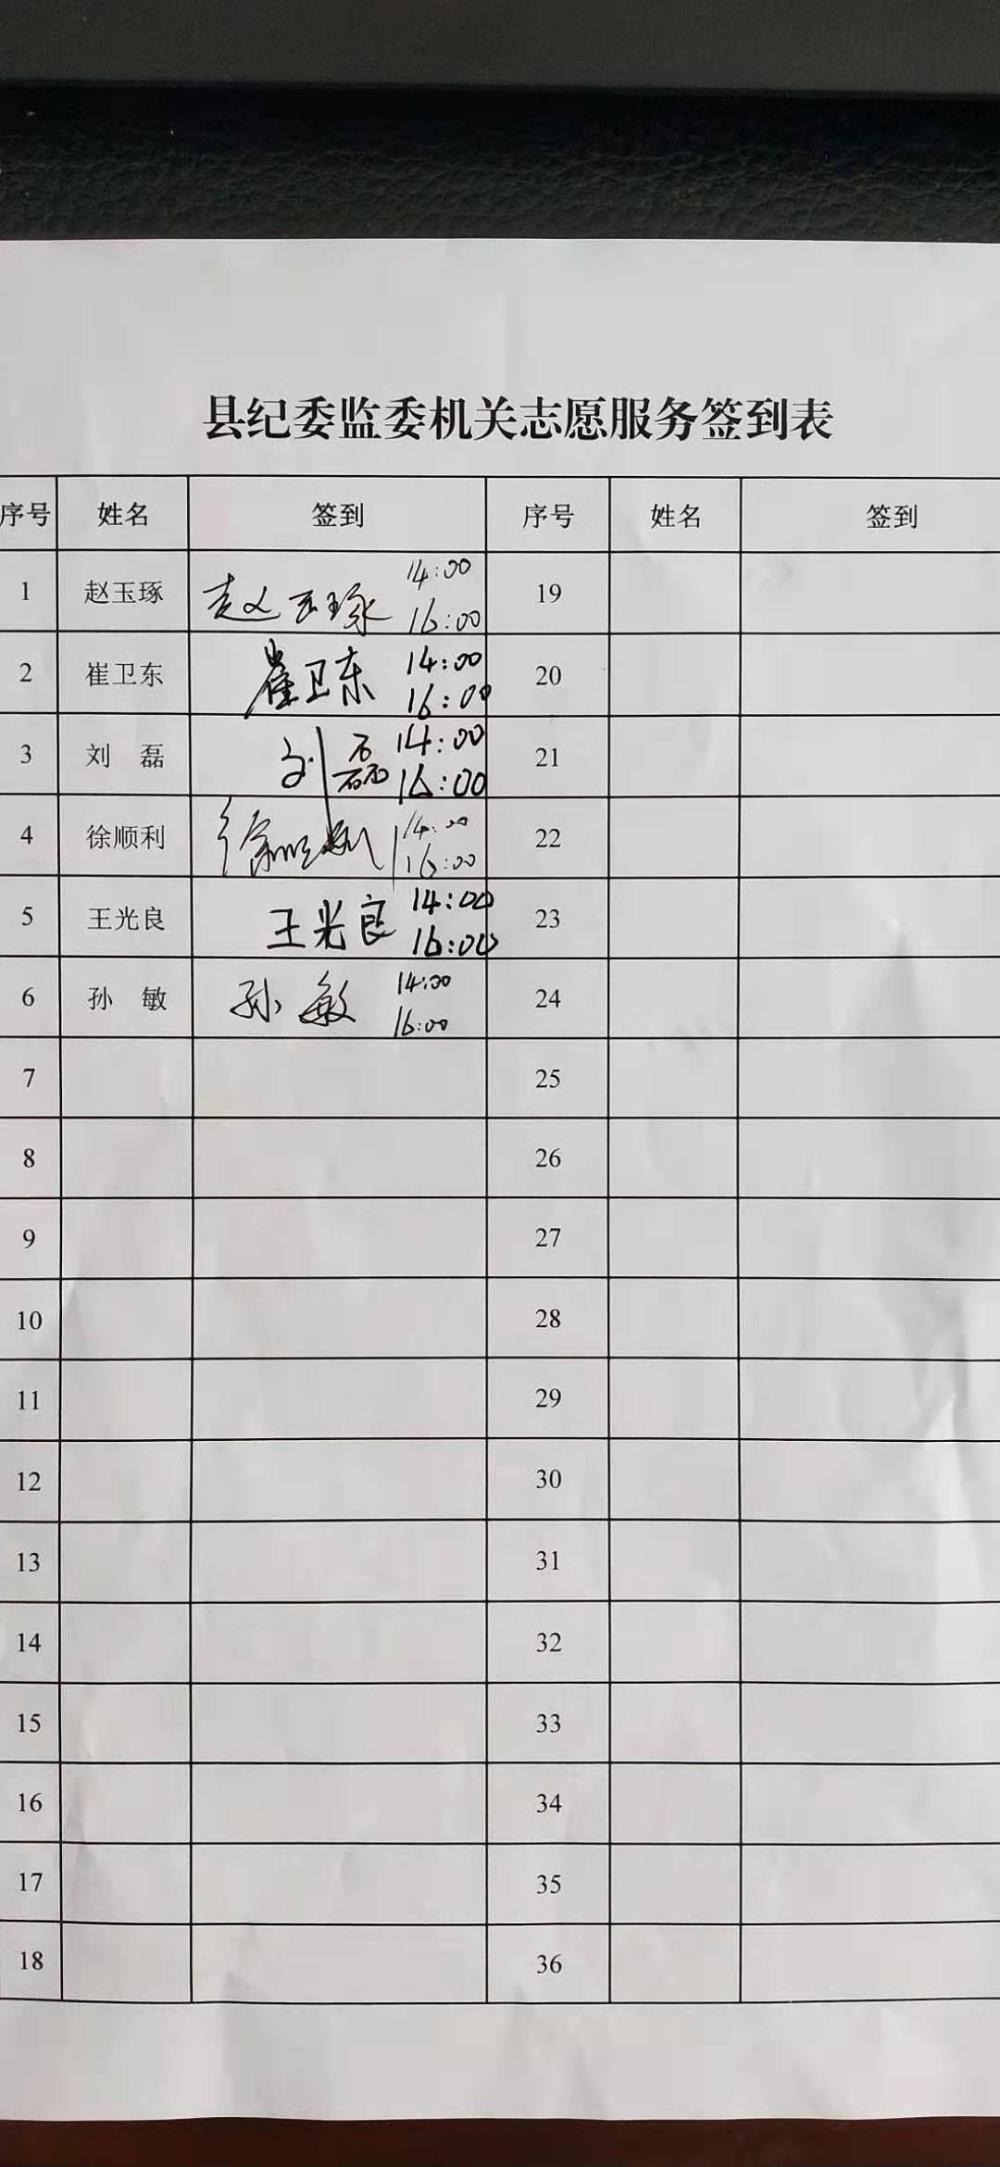 县纪委监委机关志愿服务签到表
序号 姓名 签到 序号 姓名 签到
1 赵玉琢 赵玉琢 14:00 16:00 19
2 崔卫东 崔卫东 14:00 16:00 20
3 刘 磊 刘磊 14:00 16:00 21
4 徐顺利 徐顺利 14:00 16:00 22
5 王光良 王光良 14:00 16:00 23
6 孙 敏 孙敏 14:00 16:00 24
7 25
8 26
9 27
10 28
11 29
12 30
13 31
14 32
15 33
16 34
17 35
18 36